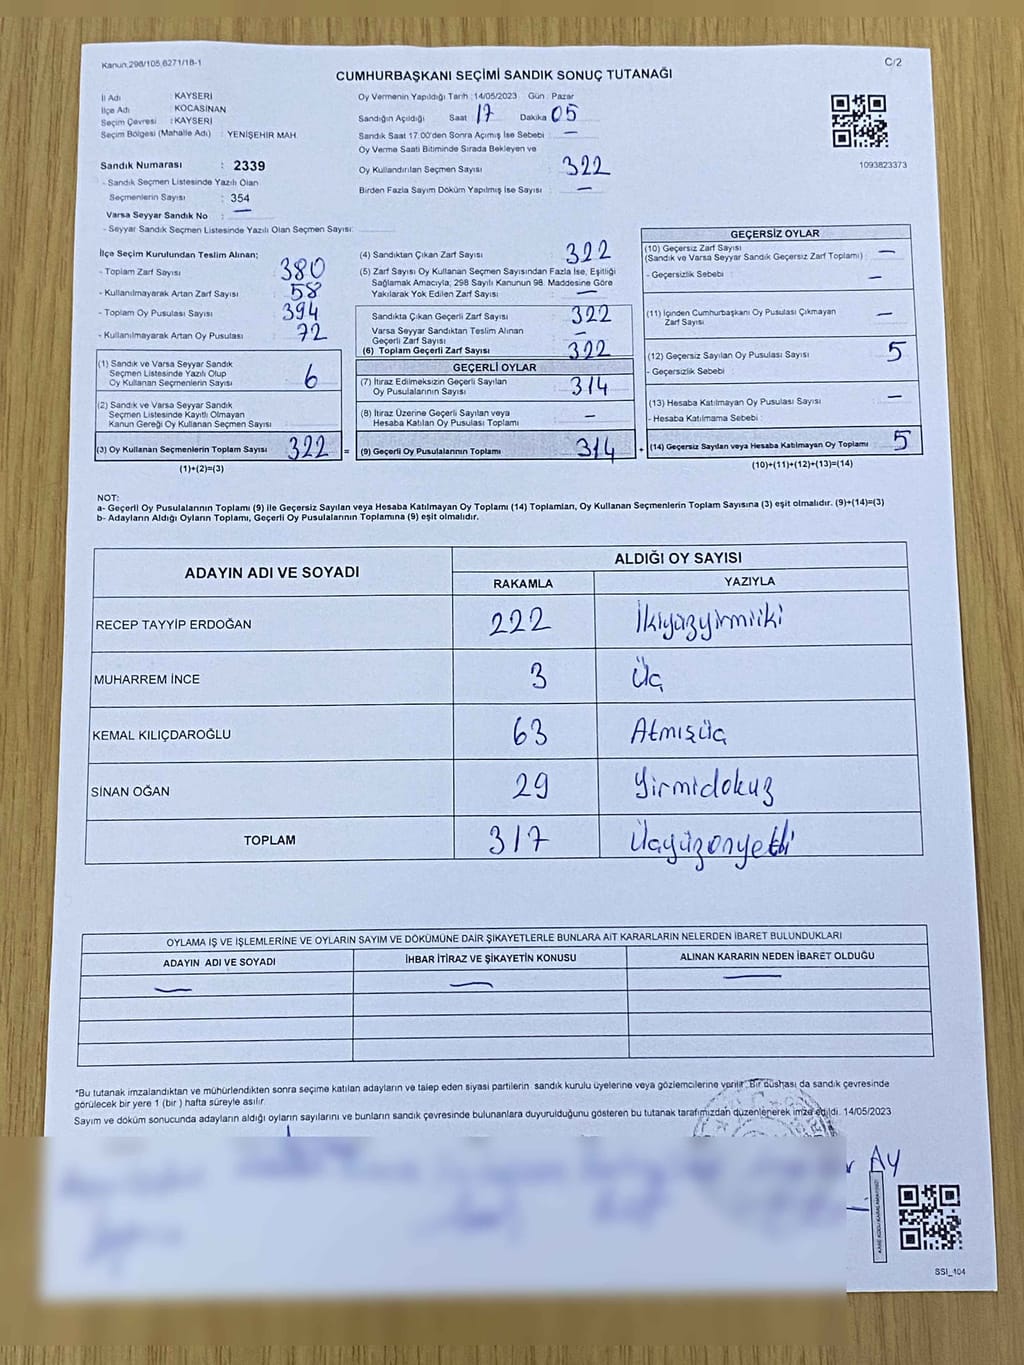 Kanun,298/105,6271/18-1
C/2
CUMHURBAŞKANI SEÇİMİ SANDIK SONUÇ TUTANAĞI
İl Adı : KAYSERİ
İlçe Adı : KOCASİNAN
Seçim Çevresi : KAYSERİ
Seçim Bölgesi (Mahalle Adı) : YENİŞEHİR MAH.
Sandık Numarası : 2339
- Sandık Seçmen Listesinde Yazılı Olan
Seçmenlerin Sayısı : 354
Varsa Seyyar Sandık No : —
- Seyyar Sandık Seçmen Listesinde Yazılı Olan Seçmen Sayısı:
Oy Vermenin Yapıldığı Tarih :14/05/2023 Gün : Pazar
Sandığın Açıldığı Saat 17 Dakika 05
Sandık Saat 17.00'den Sonra Açımış İse Sebebi : —
Oy Verme Saati Bitiminde Sırada Bekleyen ve
Oy Kullandırılan Seçmen Sayısı : 322
Birden Fazla Sayım Döküm Yapılmış İse Sayısı : —
1093823373
İlçe Seçim Kurulundan Teslim Alınan;
- Toplam Zarf Sayısı 380
- Kullanılmayarak Artan Zarf Sayısı 58
- Toplam Oy Pusulası Sayısı 394
- Kullanılmayarak Artan Oy Pusulası 72
(1) Sandık ve Varsa Seyyar Sandık
Seçmen Listesinde Yazılı Olup
Oy Kullanan Seçmenlerin Sayısı 6
(2) Sandık ve Varsa Seyyar Sandık
Seçmen Listesinde Kayıtlı Olmayan
Kanun Gereği Oy Kullanan Seçmen Sayısı
(3) Oy Kullanan Seçmenlerin Toplam Sayısı 322 =
(1)+(2)=(3)
(4) Sandıktan Çıkan Zarf Sayısı 322
(5) Zarf Sayısı Oy Kullanan Seçmen Sayısından Fazla İse, Eşitliği
Sağlamak Amacıyla; 298 Sayılı Kanunun 98. Maddesine Göre
Yakılarak Yok Edilen Zarf Sayısı : —
Sandıkta Çıkan Geçerli Zarf Sayısı 322
Varsa Seyyar Sandıktan Teslim Alınan
Geçerli Zarf Sayısı : —
(6) Toplam Geçerli Zarf Sayısı 322
GEÇERLİ OYLAR
(7) İtiraz Edilmeksizin Geçerli Sayılan
Oy Pusulalarının Sayısı 314
(8) İtiraz Üzerine Geçerli Sayılan veya
Hesaba Katılan Oy Pusulası Toplamı —
(9) Geçerli Oy Pusulalarının Toplamı 314 +
GEÇERSİZ OYLAR
(10) Geçersiz Zarf Sayısı
(Sandık ve Varsa Seyyar Sandık Geçersiz Zarf Toplamı) : —
- Geçersizlik Sebebi : —
(11) İçinden Cumhurbaşkanı Oy Pusulası Çıkmayan
Zarf Sayısı —
(12) Geçersiz Sayılan Oy Pusulası Sayısı 5
- Geçersizlik Sebebi
(13) Hesaba Katılmayan Oy Pusulası Sayısı : —
- Hesaba Katılmama Sebebi :
(14) Geçersiz Sayılan veya Hesaba Katılmayan Oy Toplamı 5
(10)+(11)+(12)+(13)=(14)
NOT:
a- Geçerli Oy Pusulalarının Toplamı (9) ile Geçersiz Sayılan veya Hesaba Katılmayan Oy Toplamı (14) Toplamları, Oy Kullanan Seçmenlerin Toplam Sayısına (3) eşit olmalıdır. (9)+(14)=(3)
b- Adayların Aldığı Oyların Toplamı, Geçerli Oy Pusulalarının Toplamına (9) eşit olmalıdır.
ADAYIN ADI VE SOYADI
ALDIĞI OY SAYISI
RAKAMLA YAZIYLA
RECEP TAYYİP ERDOĞAN 222 İkiyüzyirmiiki
MUHARREM İNCE 3 Üç
KEMAL KILIÇDAROĞLU 63 Atmışüç
SİNAN OĞAN 29 Yirmidokuz
TOPLAM 317 Üçyüzonyedi
OYLAMA İŞ VE İŞLEMLERİNE VE OYLARIN SAYIM VE DÖKÜMÜNE DAİR ŞİKAYETLERLE BUNLARA AİT KARARLARIN NELERDEN İBARET BULUNDUKLARI
ADAYIN ADI VE SOYADI İHBAR İTİRAZ VE ŞİKAYETİN KONUSU ALINAN KARARIN NEDEN İBARET OLDUĞU
— — —
*Bu tutanak imzalandıktan ve mühürlendikten sonra seçime katılan adayların ve talep eden siyasi partilerin sandık kurulu üyelerine veya gözlemcilerine verilir. Bir nüshası da sandık çevresinde
görülecek bir yere 1 (bir ) hafta süreyle asılır.
Sayım ve döküm sonucunda adayların aldığı oyların sayılarını ve bunların sandık çevresinde bulunanlara duyurulduğunu gösteren bu tutanak tarafımızdan düzenlenerek imza edildi. 14/05/2023
AY
SSI_104